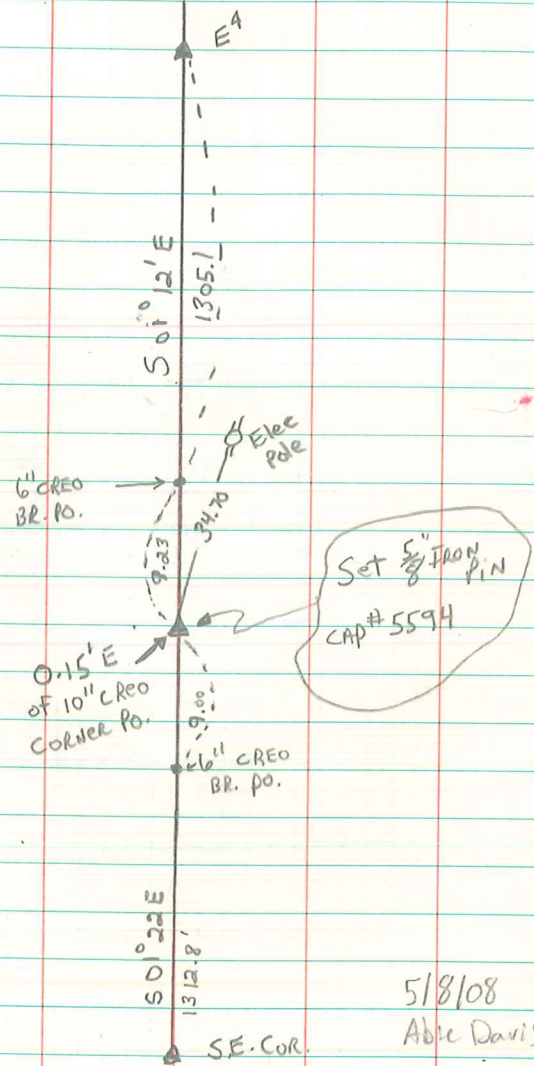 E4
S 01° 12' E
1305.1
Elec
Pole
6" CREO
BR. PO.
34.70
9.23
Set 5/8" IRON
PIN
CAP # 5594
0.15' E
OF 10" CREO
CORNER PO.
9.00
6" CREO
BR. PO.
S 01° 22 E
1312.8'
5/8/08
Able Davis
S.E. COR.